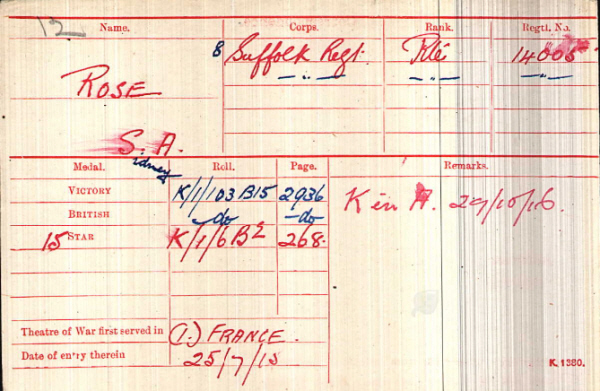 12
Name. Corps. Rank. Regtl. No.
ROSE 8 Suffolk Regt. Pte 14005
S. A. — " — — " — — " —
idney
Medal. Roll. Page. Remarks.
VICTORY K/1/103 B15 2936 K in A. 29/10/16.
BRITISH — do — do
15 STAR K/1/6 B2 268.
Theatre of War first served in (1.) FRANCE.
Date of entry therein 25/7/15
K.1380.